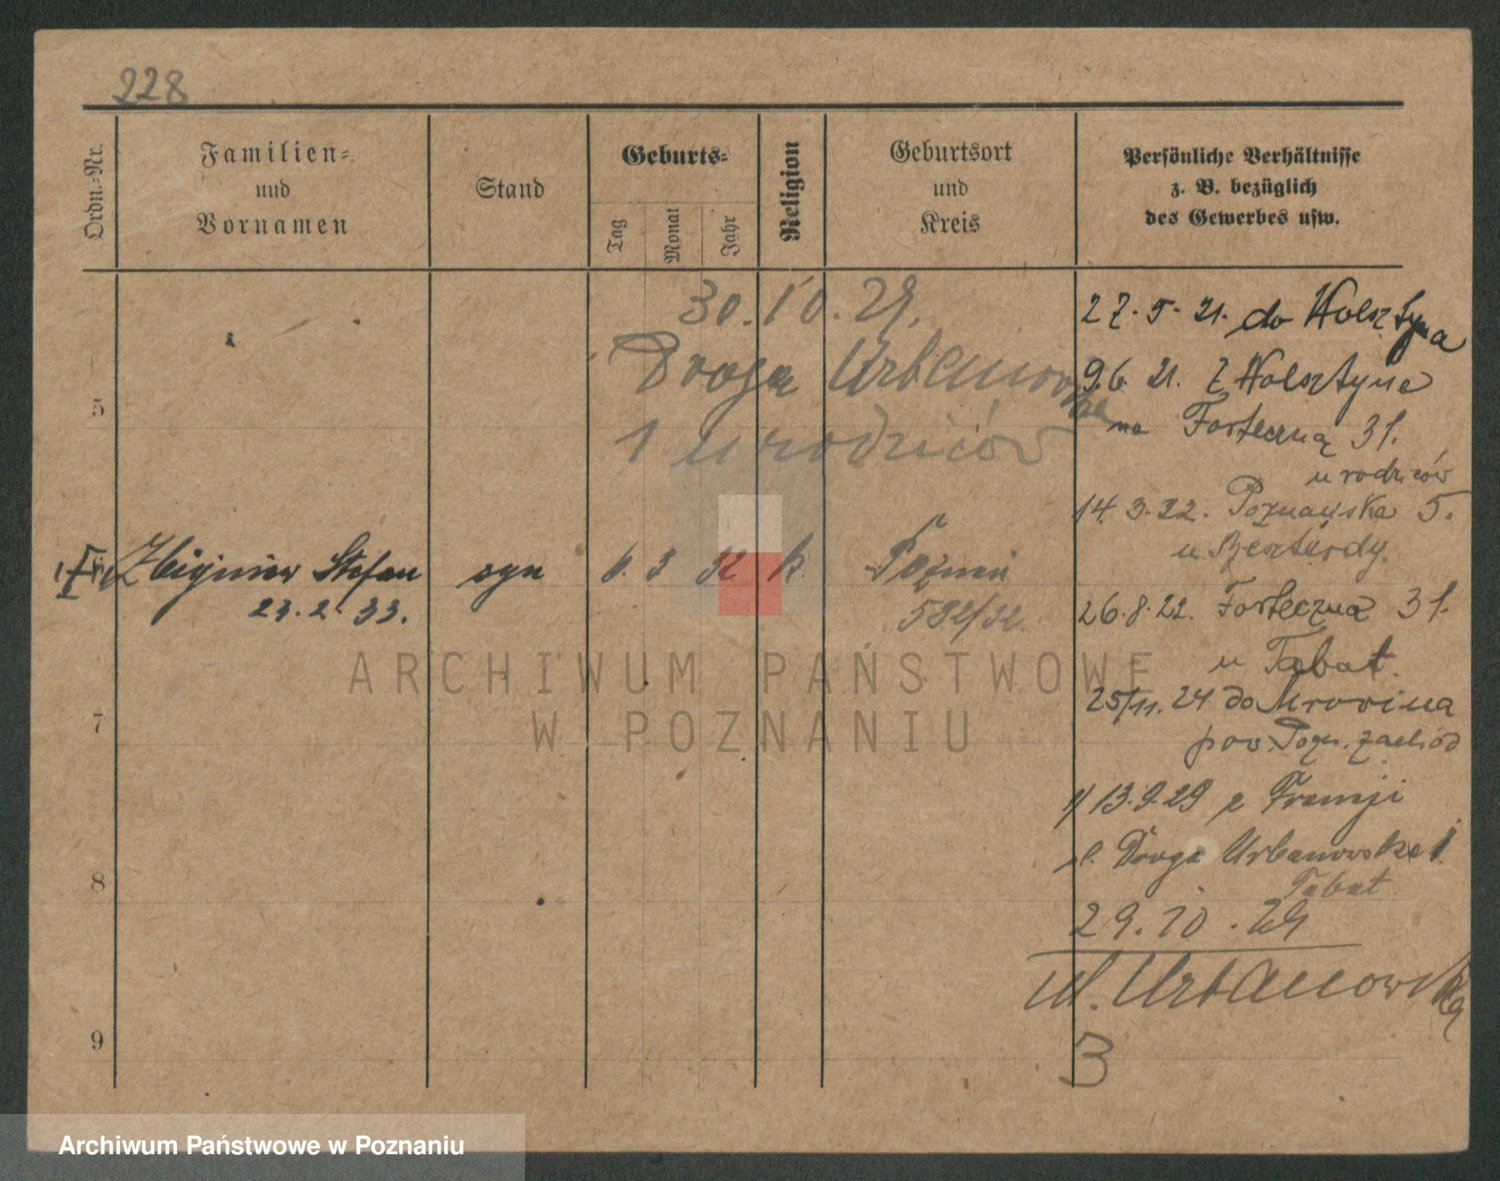 228
Ordn.-Nr.
Familien-
und
Vornamen
Stand
Geburts-
Tag
Monat
Jahr
Religion
Geburtsort
und
Kreis
Persönliche Verhältnisse
z. B. bezüglich
des Gewerbes usw.
30.10.29.
Droga Urbanowska
1 u rodziców
27.5.21. do Wolsztyna
9.6.21. z Wolsztyna
na Forteczną 31.
u rodziców
14.3.22. Poznańska 5.
u
26.8.22. Forteczna 31.
u Tabat.
25/11.24 do Mrowina
pow. Pozn. zachód
1) 13.9.29 z Francji
ul. Droga Urbanowska 1.
Tabat
29.10.29
ul. Urbanowska
3
5
Zbigniew Stefan
23.2.33.
syn
6. 3 32
k.
Poznań
582/32.
7
8
9
ARCHIWUM PAŃSTWOWE
W POZNANIU
Archiwum Państwowe w Poznaniu